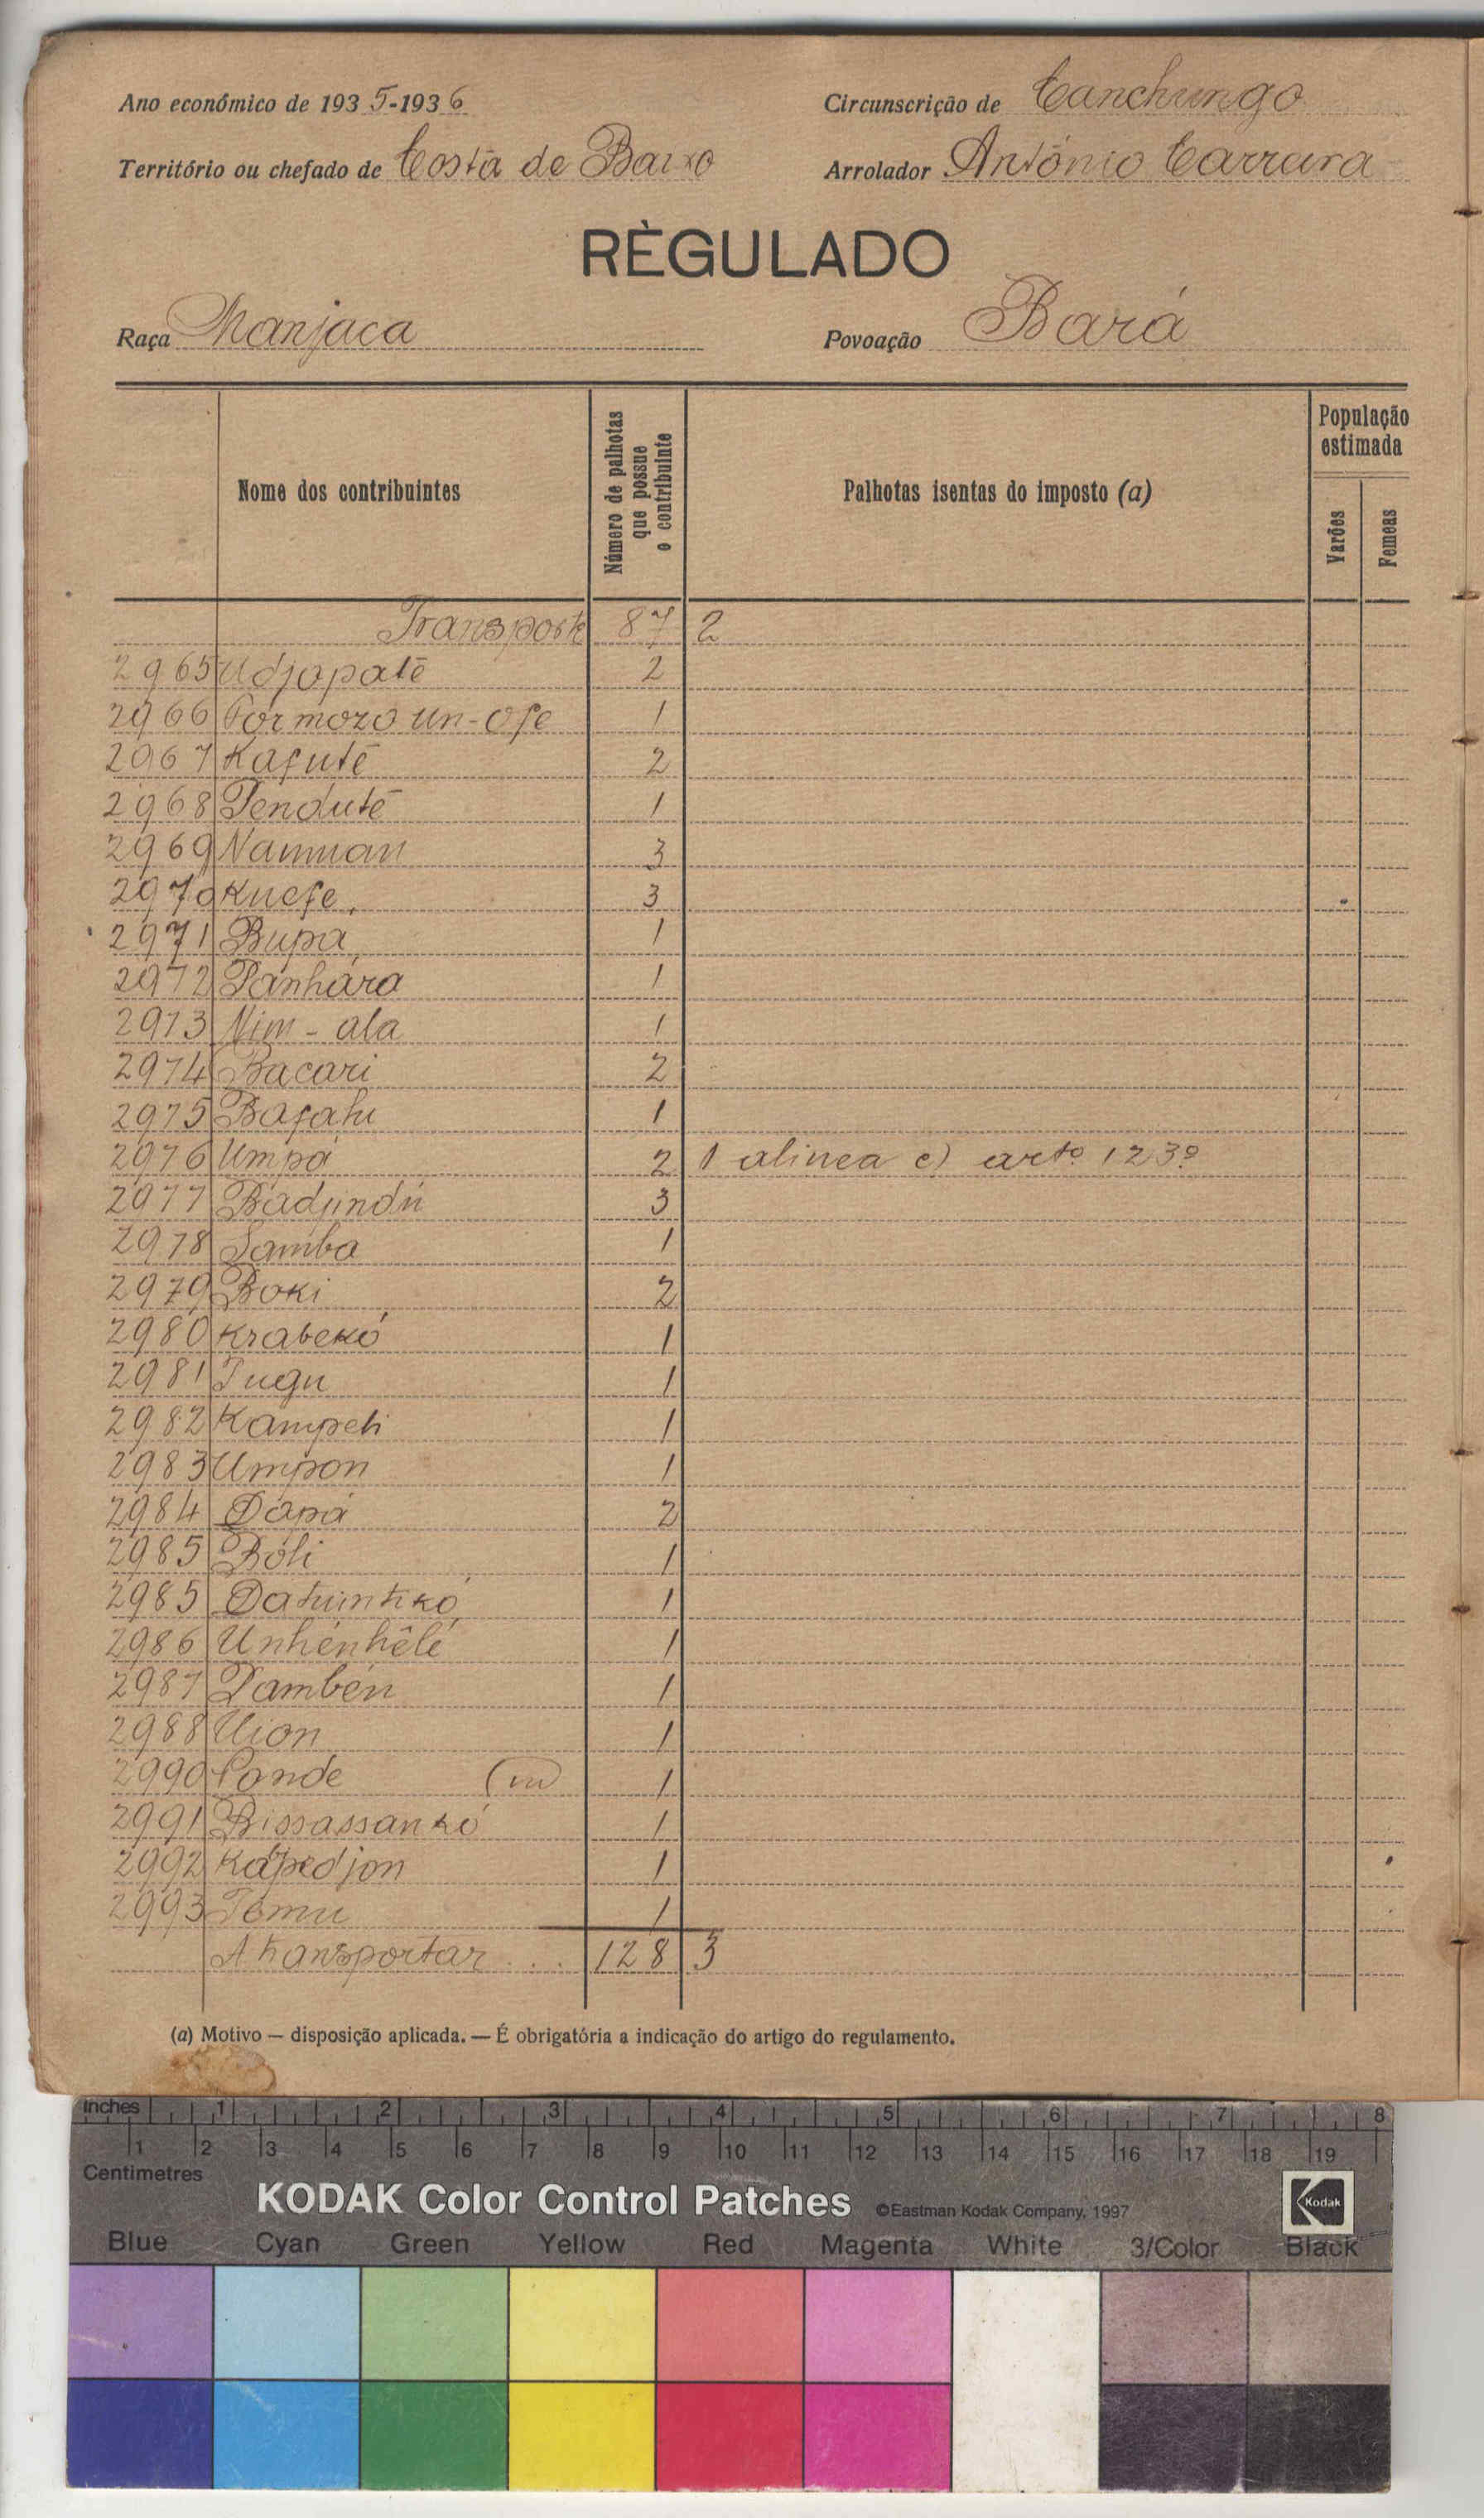 Ano económico de 1935-1936
Circunscrição de Canchungo
Território ou chefado de Costa de Baixo
Arrolador António Carreira
RÈGULADO
Raça Manjaca
Povoação Bará
Nome dos contribuintes
Número de palhotas que possue o contribuinte
Palhotas isentas do imposto (a)
População estimada
Varões
Femeas
Transporte 87 2
2965 Udjopaté 2
2966 Pormozo Un-Ofe 1
2967 Kafuté 2
2968 Penduté 1
2969 Naunuan 3
2970 Kuefe 3
2971 Bupa 1
2972 Panhára 1
2973 Nim-ala 1
2974 Bacari 2
2975 Bafahu 1
2976 Umpá 2 1 alinea c) artº 123º
2977 Badjindú 3
2978 Samba 1
2979 Boki 2
2980 Krabekó 1
2981 Tugu 1
2982 Kampeti 1
2983 Umpon 1
2984 Dápá 2
2985 Bóli 1
2985 1
2986 Unhênhêlé 1
2987 Dambén 1
2988 Uion 1
2990 Conde 1
2991 Bissassankó 1
2992 Kapedjon 1
2993 Tomu 1
A transportar ... 128 3
(a) Motivo — disposição aplicada. — É obrigatória a indicação do artigo do regulamento.
Inches 1 2 3 4 5 6 7 8
1 2 3 4 5 6 7 8 9 10 11 12 13 14 15 16 17 18 19
Centimetres
KODAK Color Control Patches ©Eastman Kodak Company, 1997 Kodak
Blue Cyan Green Yellow Red Magenta White 3/Color Black